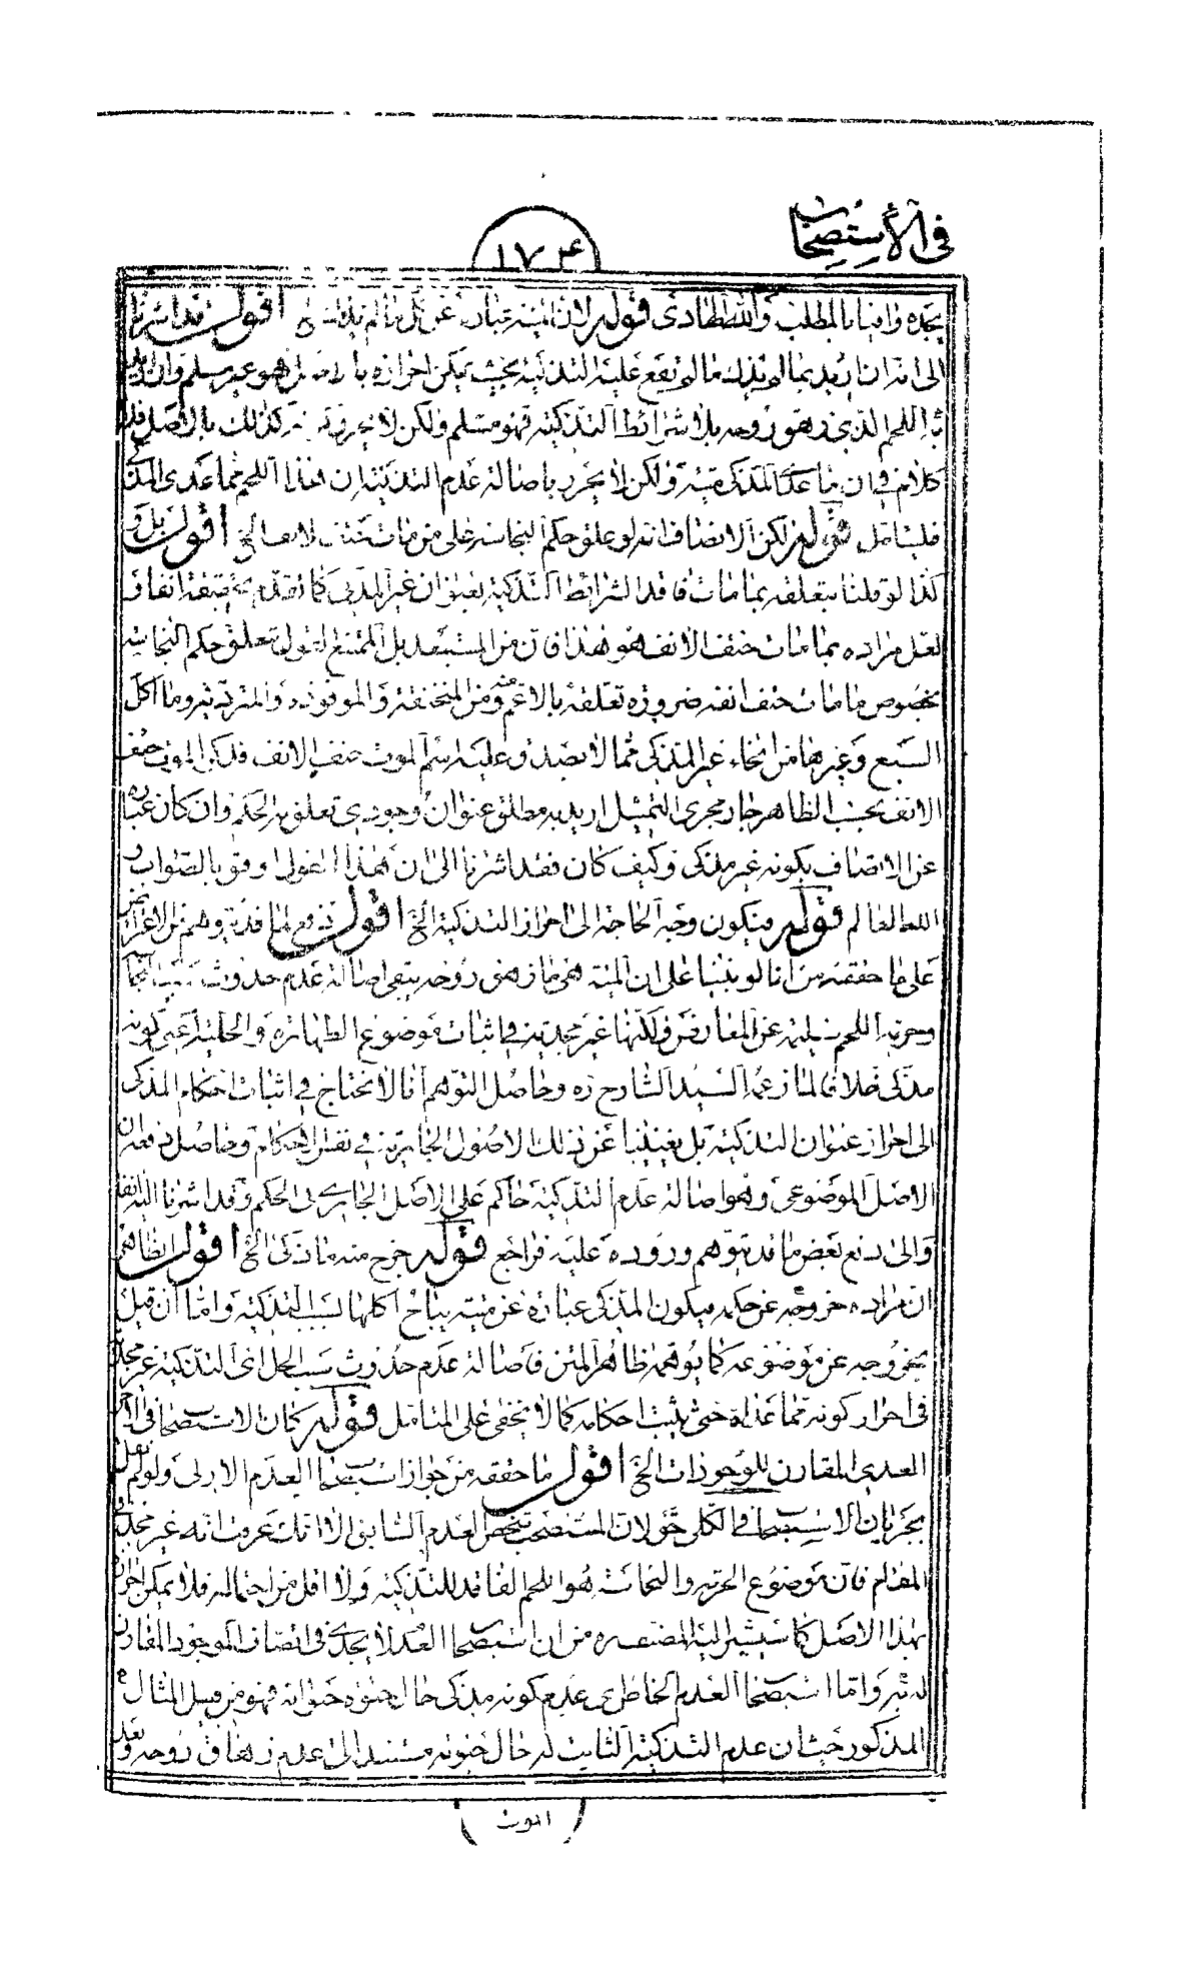 في الاستصحاب
١٧٤
تجده وافيا بالمطلب والله الهادي قوله لان الميتة عبارة عن كل ما لم يذك الخ اقول قد اشرنا
الى انه ان اريد بما لم يذك ما لم تقع عليه التذكية بحيث يمكن احرازه بالاصل فهو غير مسلم وان اريد
به اللحم الذي زهق روحه بلا شرائط التذكية فهو مسلم ولكن لا يحرز كذلك بالاصل
كلام في ان ما عدا المذكى ميتة ولكن لا يحرز باصالة عدم التذكية ان هذا اللحم مما عدى المذكى
فليتأمل قوله لكن الانصاف انه لو علق حكم النجاسة على من مات حتف الانف الخ اقول بل و
كذا لو قلنا بتعلقه بما مات فاقد الشرائط التذكية بعنوان غير المذكى كما تقدم تحقيقه انفا و
لعل مراده بما مات حتف الانف هو هذا فان من المستبعد بل الممتنع القول بتعلق حكم النجاسة
بخصوص ما مات حتف انفه ضرورة تعلقه بالاعم منه ومن المنخنقة والموقوذة والمتردية وما اكل
السبع وغيرها من انحاء غير المذكى مما لا يصدق عليه اسم الموت حتف الانف فذكر الموت حتف
الانف بحسب الظاهر جار مجرى التمثيل اريد به مطلق عنوان وجودي تعلق به الحكم وان كان عبارة
عن الاتصاف بكونه غير مذكى وكيف كان فقد اشرنا الى ان هذا القول اوفق بالصواب و
الله العالم قوله فيكون وجه الحاجة الى احراز التذكية الخ اقول دفع لما قد يتوهم من الاعتراض
على ما حققه من انا لو بنينا على ان الميتة هي ما زهق روحه يبقى اصالة عدم حدوث سبب نجاسة
وحرمة اللحم سليمة عن المعارض ولكنها غير مجدية في اثبات موضوع الطهارة والحلية اعني كونه
مذكى خلافا لما زعمه السيد الشارح ره وحاصل التوهم انا لا نحتاج في اثبات احكام المذكى
الى احراز عنوان التذكية بل يغنينا عن ذلك الاصول الجارية في نفس الاحكام وحاصل دفعه ان
الاصل الموضوعي وهو اصالة عدم التذكية حاكم على الاصل الجاري في الحكم وقد اشرنا اليه انفا
والى دفع بعض ما قد يتوهم وروده عليه فراجع قوله خرج منه ما ذكى الخ اقول الظاهر
ان مراده خروجه عن حكمه فيكون المذكى عبارة عن ميتة يباح اكلها بسبب التذكية واما ان قيل
بخروجه عن موضوعه كما يوهمه ظاهر المتن فاصالة عدم حدوث سبب الحل اي التذكية غير مجدية
في احراز كونه مما عداه حتى يثبت احكامه كما لا يخفى على المتأمل قوله كان الاستصحاب في الامر
العدمي المقارن للوجودات الخ اقول ما حققه من جواز استصحاب العدم الازلي ولو لم نقل
بجريان الاستصحاب في الكلي حق لان المستصحب شخص العدم السابق الا انك عرفت انه غير مجد في
المقام فان موضوع الحرمة والنجاسة هو اللحم الفاقد للتذكية ولا اقل من احتماله فلا يمكن احرازه
بهذا الاصل كما سيشير اليه المصنف ره من ان استصحاب العدم لا يجدي في اتصاف الموجود المقارن
له به واما استصحاب العدم الخاص اي عدم كونه مذكى حال حيوة حيوانه فهو من قبيل المثال
المذكور حيث ان عدم التذكية الثابت له حال حيوته مستند الى عدم زهاق روحه وبعد
الموت